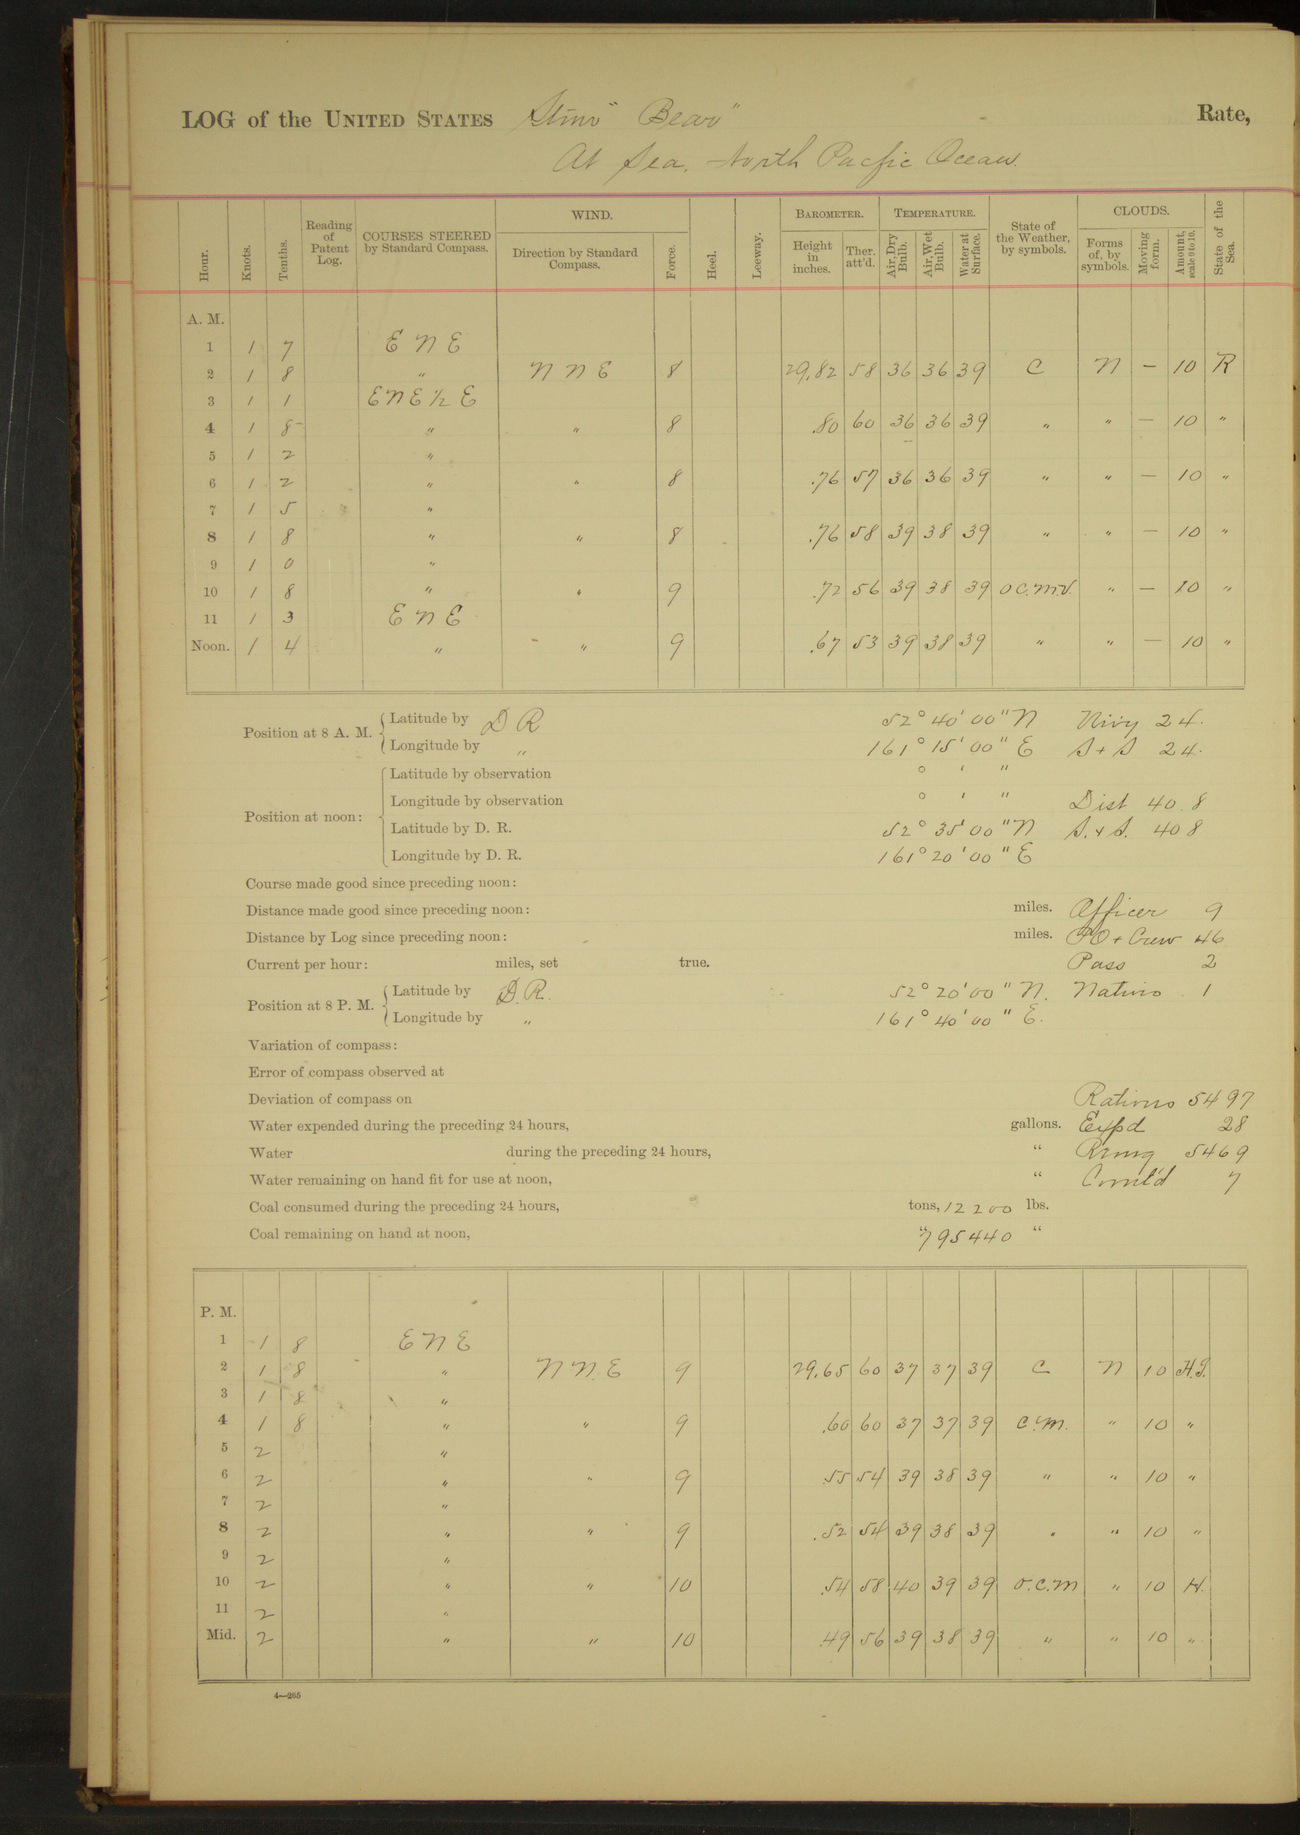 LOG of the UNITED STATES Stmr "Bear" Rate,
At Sea, North Pacfic Ocean.
Hour. Knots. Tenths. Reading of Patent Log. COURSES STEERED by Standard Compass. WIND. Direction by Standard Compass. Force. Heel. Leeway. BAROMETER. Height in inches. Ther. att'd. TEMPERATURE. Air, Dry Bulb. Air, Wet Bulb. Water at Surface. State of the Weather, by symbols. CLOUDS. Forms of, by symbols. Moving form. Amount, scale 0 to 10. State of the Sea.
A. M.
1 1 7 E N E
2 1 8 " N N E 8 29.82 58 36 36 39 C N — 10 R
3 1 1 E N E 1/2 E
4 1 8 " " 8 .80 60 36 36 39 " " — 10 "
5 1 2 "
6 1 2 " " 8 .76 57 36 36 39 " " — 10 "
7 1 5 "
8 1 8 " " 8 .76 58 39 38 39 " " — 10 "
9 1 0 "
10 1 8 " " 9 .72 56 39 38 39 O C. M. V. " — 10 "
11 1 3 E N E
Noon. 1 4 " " 9 .67 53 39 38 39 " " — 10 "
Position at 8 A. M. Latitude by D R 52° 40' 00" N Nivy 24.
Longitude by " 161° 15' 00" E S + S 24.
Position at noon: Latitude by observation ° ' "
Longitude by observation ° ' " Dist 40.8
Latitude by D. R. 52° 35' 00" N S. + S. 40 8
Longitude by D. R. 161° 20' 00" E
Course made good since preceding noon:
Distance made good since preceding noon: miles. Officer 9
Distance by Log since preceding noon: miles. PO + Crew 46
Current per hour: miles, set true. Pass 2
Position at 8 P. M. Latitude by D. R. 52° 20' 00" N. Nativs 1
Longitude by " 161° 40' 00" E.
Variation of compass:
Error of compass observed at
Deviation of compass on Rations 5497
Water expended during the preceding 24 hours, gallons. Expd 28
Water during the preceding 24 hours, " Rmng 5469
Water remaining on hand fit for use at noon, " Comt'd 7
Coal consumed during the preceding 24 hours, tons, 12200 lbs.
Coal remaining on hand at noon, " 795440 "
P. M.
1 1 8 E N E
2 1 8 " N N. E 9 29.65 60 37 37 39 C N 10 H.S.
3 1 8 "
4 1 8 " " 9 .60 60 37 37 39 C. M. " 10 "
5 2 "
6 2 " " 9 .55 54 39 38 39 " " 10 "
7 2 "
8 2 " " 9 .52 54 39 38 39 " " 10 "
9 2 "
10 2 " " 10 .54 58 40 39 39 O. C. M " 10 H.
11 2 "
Mid. 2 " " 10 .49 56 39 38 39 " " 10 "
4—265